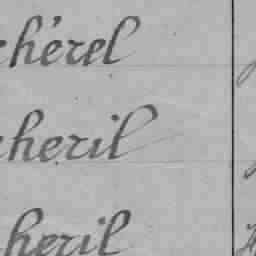 chérel
cheril
heril